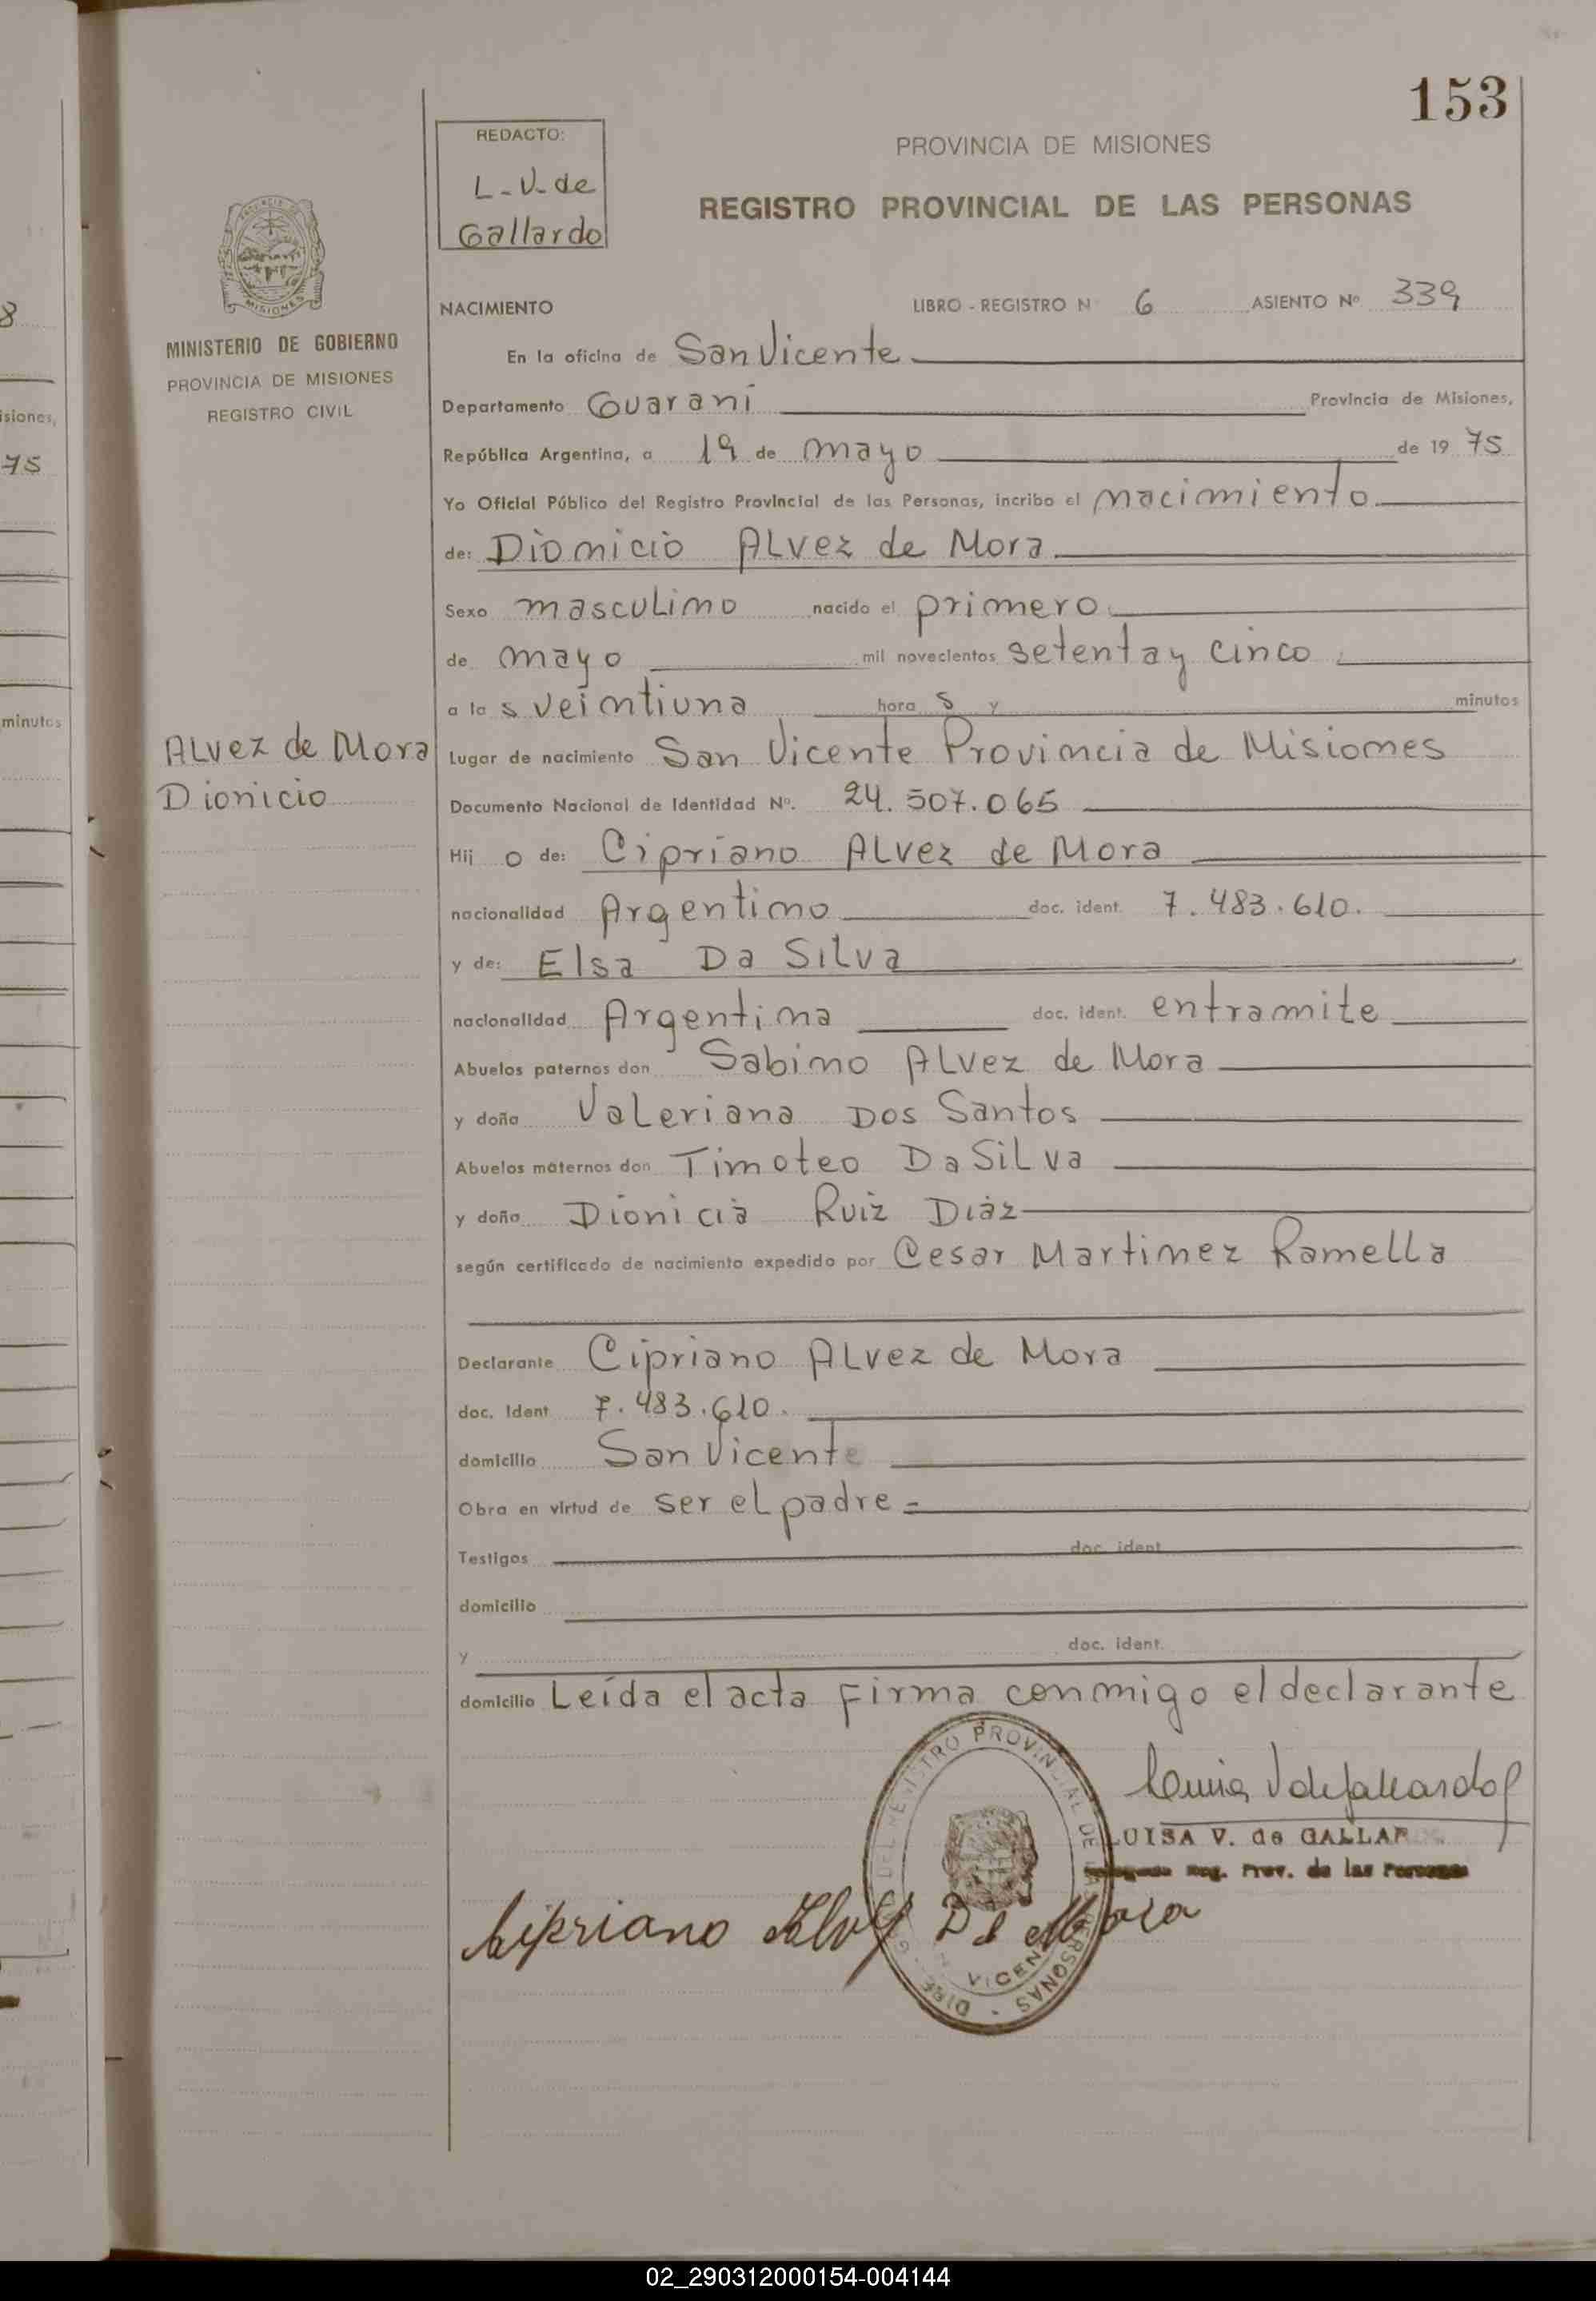 153
REDACTO:
L-V-de
Gallardo
PROVINCIA DE MISIONES
REGISTRO PROVINCIAL DE LAS PERSONAS
MISIONES
MINISTERIO DE GOBIERNO
PROVINCIA DE MISIONES
REGISTRO CIVIL
8
isiones,
75
minutos
NACIMIENTO LIBRO - REGISTRO N 6 ASIENTO Nº 339
En la oficina de San Vicente
Departamento Guaraní Provincia de Misiones,
República Argentina, a 19 de mayo de 19 75
Yo Oficial Público del Registro Provincial de las Personas, incribo el nacimiento
de: Dionicio Alvez de Mora
Sexo masculino nacido el primero
de mayo mil novecientos setenta y cinco
a la s veintiuna hora s y minutos
Alvez de Mora
Dionicio
Lugar de nacimiento San Vicente Provincia de Misiones
Documento Nacional de Identidad Nº. 24.507.065
Hij o de: Cipriano Alvez de Mora
nacionalidad Argentino doc. ident. 7.483.610.
y de: Elsa Da Silva
nacionalidad Argentina doc. ident. entramite
Abuelos paternos don Sabino Alvez de Mora
y doña Valeriana Dos Santos
Abuelos maternos don Timoteo Da Silva
y doña Dionicia Ruiz Diaz
según certificado de nacimiento expedido por Cesar Martinez Ramella
Declarante Cipriano Alvez de Mora
doc. Ident 7.483.610.
domicilio San Vicente
Obra en virtud de ser el padre =
Testigos doc. ident
domicilio
y doc. ident.
domicilio Leída el acta firma conmigo el declarante
LUISA V. de GALLAR
Reg. Prov. de las Personas
Cipriano Alvez De Mora
REGISTRO PROVINCIAL DE LAS PERSONAS
VICEN
02_290312000154-004144